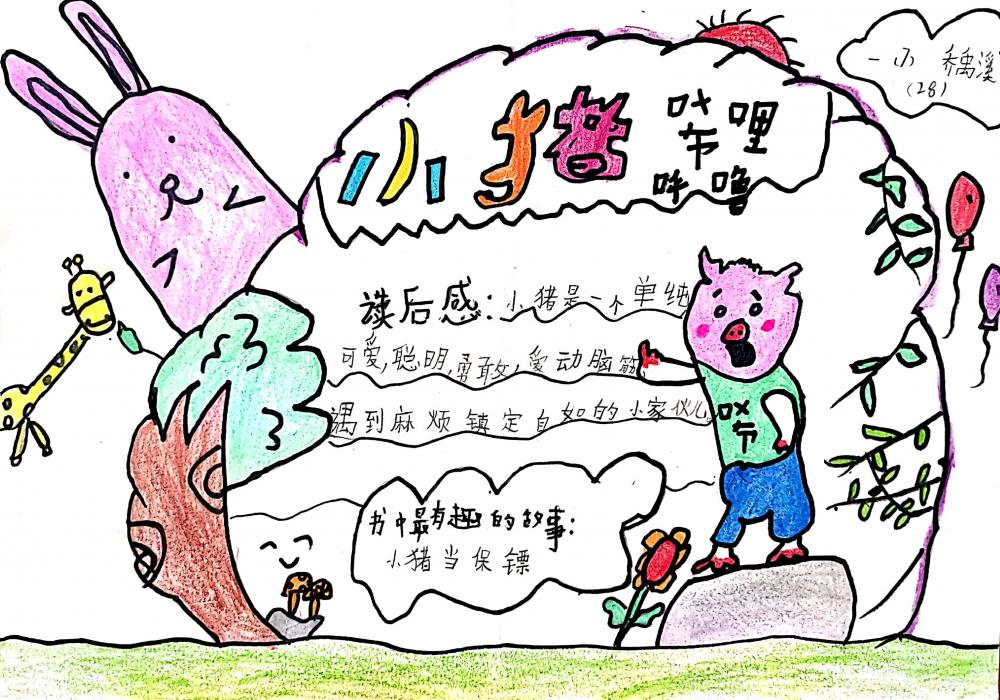 小猪
唏哩
呼噜
一(5) 乔禹溪
(28)
读后感:小猪是一个单纯
可爱,聪明,勇敢,爱动脑筋
遇到麻烦镇定自如的小家伙儿。
书中最有趣的故事:
小猪当保镖